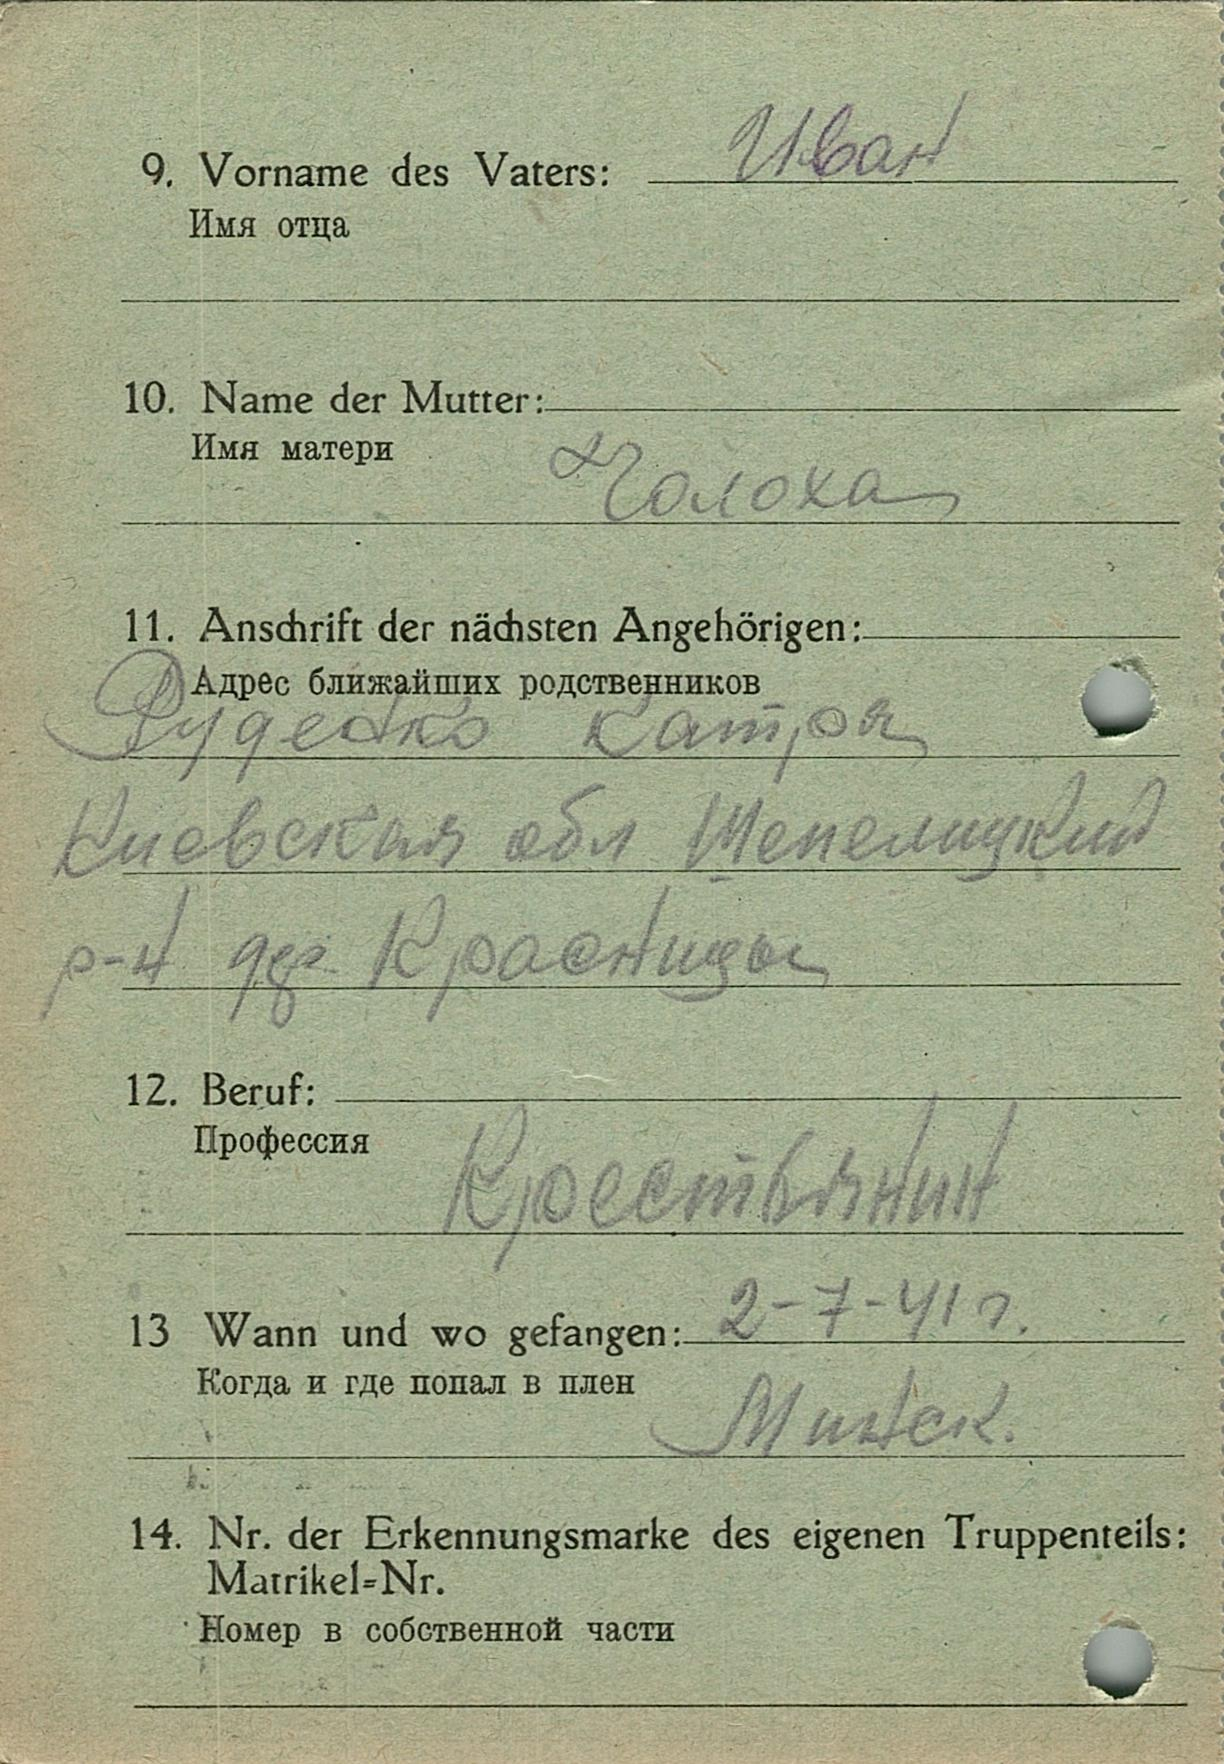 9. Vorname des Vaters: Иван
Имя отца
10. Name der Mutter:
Имя матери
Чолоха
11. Anschrift der nächsten Angehörigen:
Адрес ближайших родственников
Руденко Катря
Киевская обл Шепелицкий
р-н дер Красницы
12. Beruf:
Профессия
Крестьянин
13 Wann und wo gefangen: 2-7-41 г.
Когда и где попал в плен
Минск.
14. Nr. der Erkennungsmarke des eigenen Truppenteils:
Matrikel=Nr.
Номер в собственной части